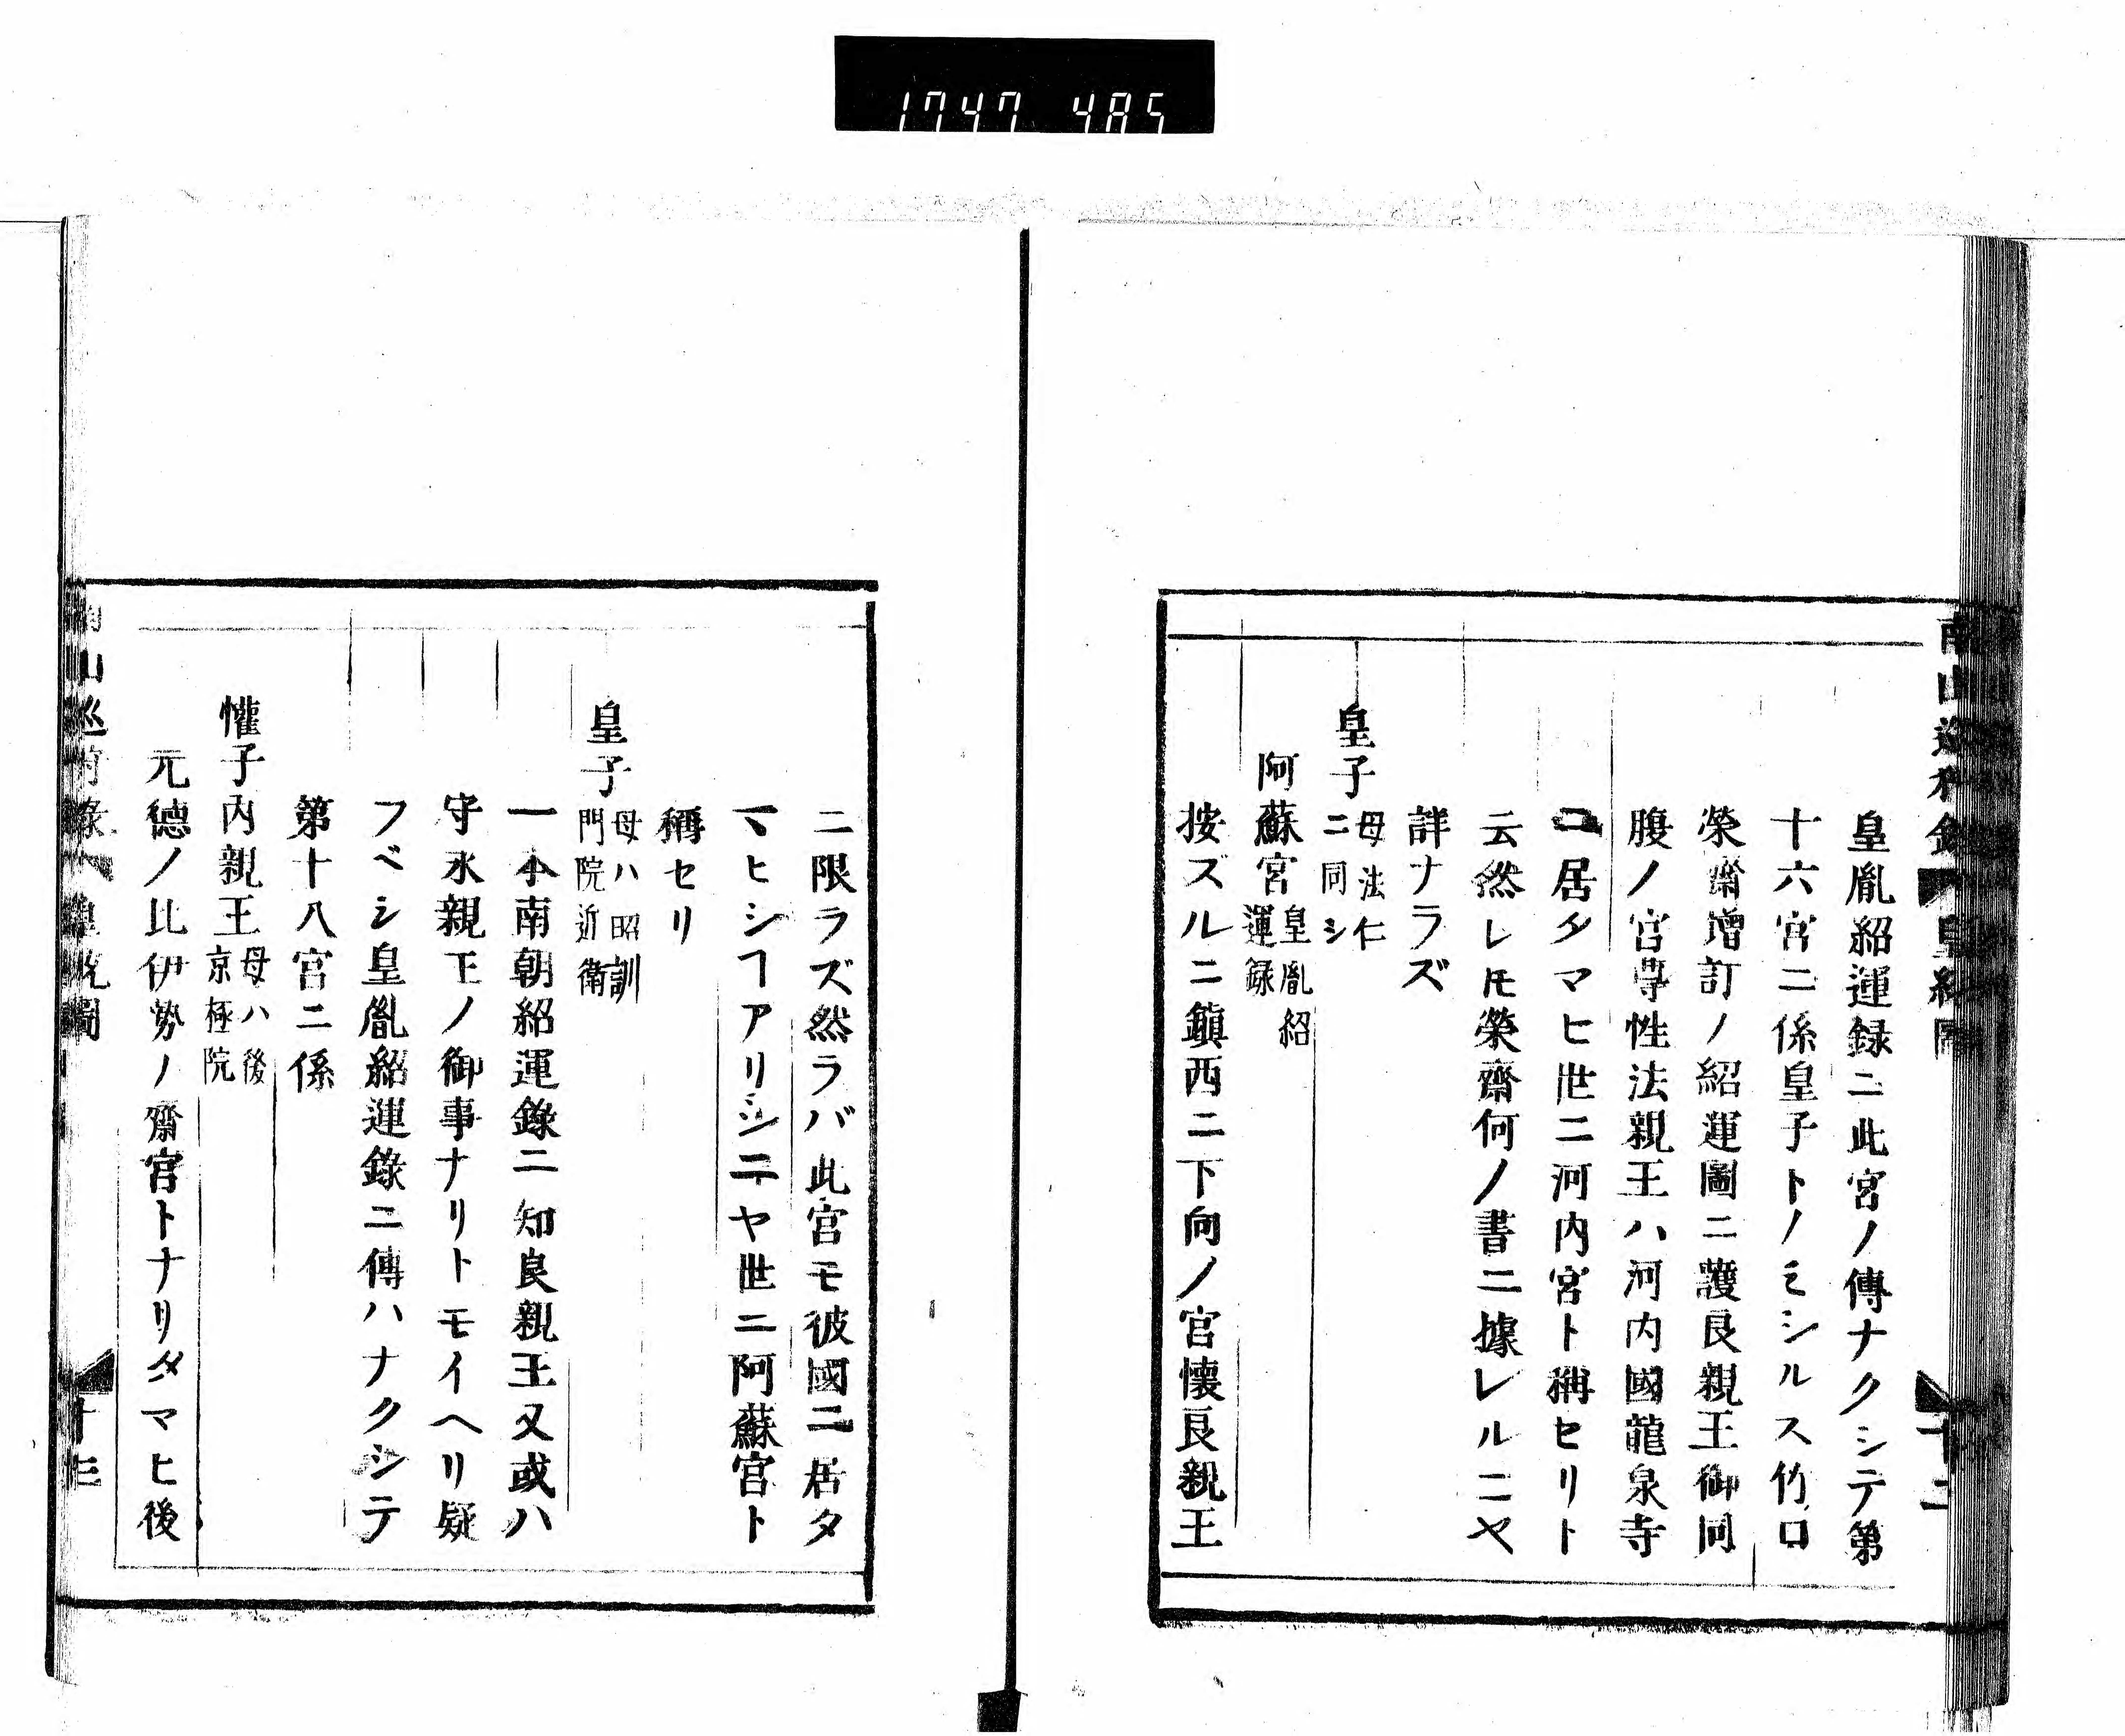 1747 485
皇胤紹運録ニ此宮ノ傳ナクシテ第
十六宮ニ係皇子トノミシルス竹口
榮齋増訂ノ紹運圖ニ護良親王御同
腹ノ宮尊性法親王ハ河内國龍泉寺
ニ居タマヒ世ニ河内宮ト稱セリト
云然レ𪜈榮齋何ノ書ニ據レルニヤ
詳ナラズ
皇子 母法仁
ニ同シ
阿蘇宮 皇胤紹
運録
按ズルニ鎮西ニ下向ノ宮懐良親王
ニ限ラズ然ラバ此宮モ彼國ニ居タ
マヒシヿアリシニヤ世ニ阿蘇宮ト
稱セリ
皇子 母ハ昭訓
門院近衛
一本南朝紹運錄ニ知良親王又或ハ
守永親王ノ御事ナリトモイヘリ疑
フベシ皇胤紹運錄ニ傳ハナクシテ
第十八宮ニ係
懽子内親王 母ハ後
京極院
元德ノ比伊勢ノ齋宮トナリタマヒ後
十三